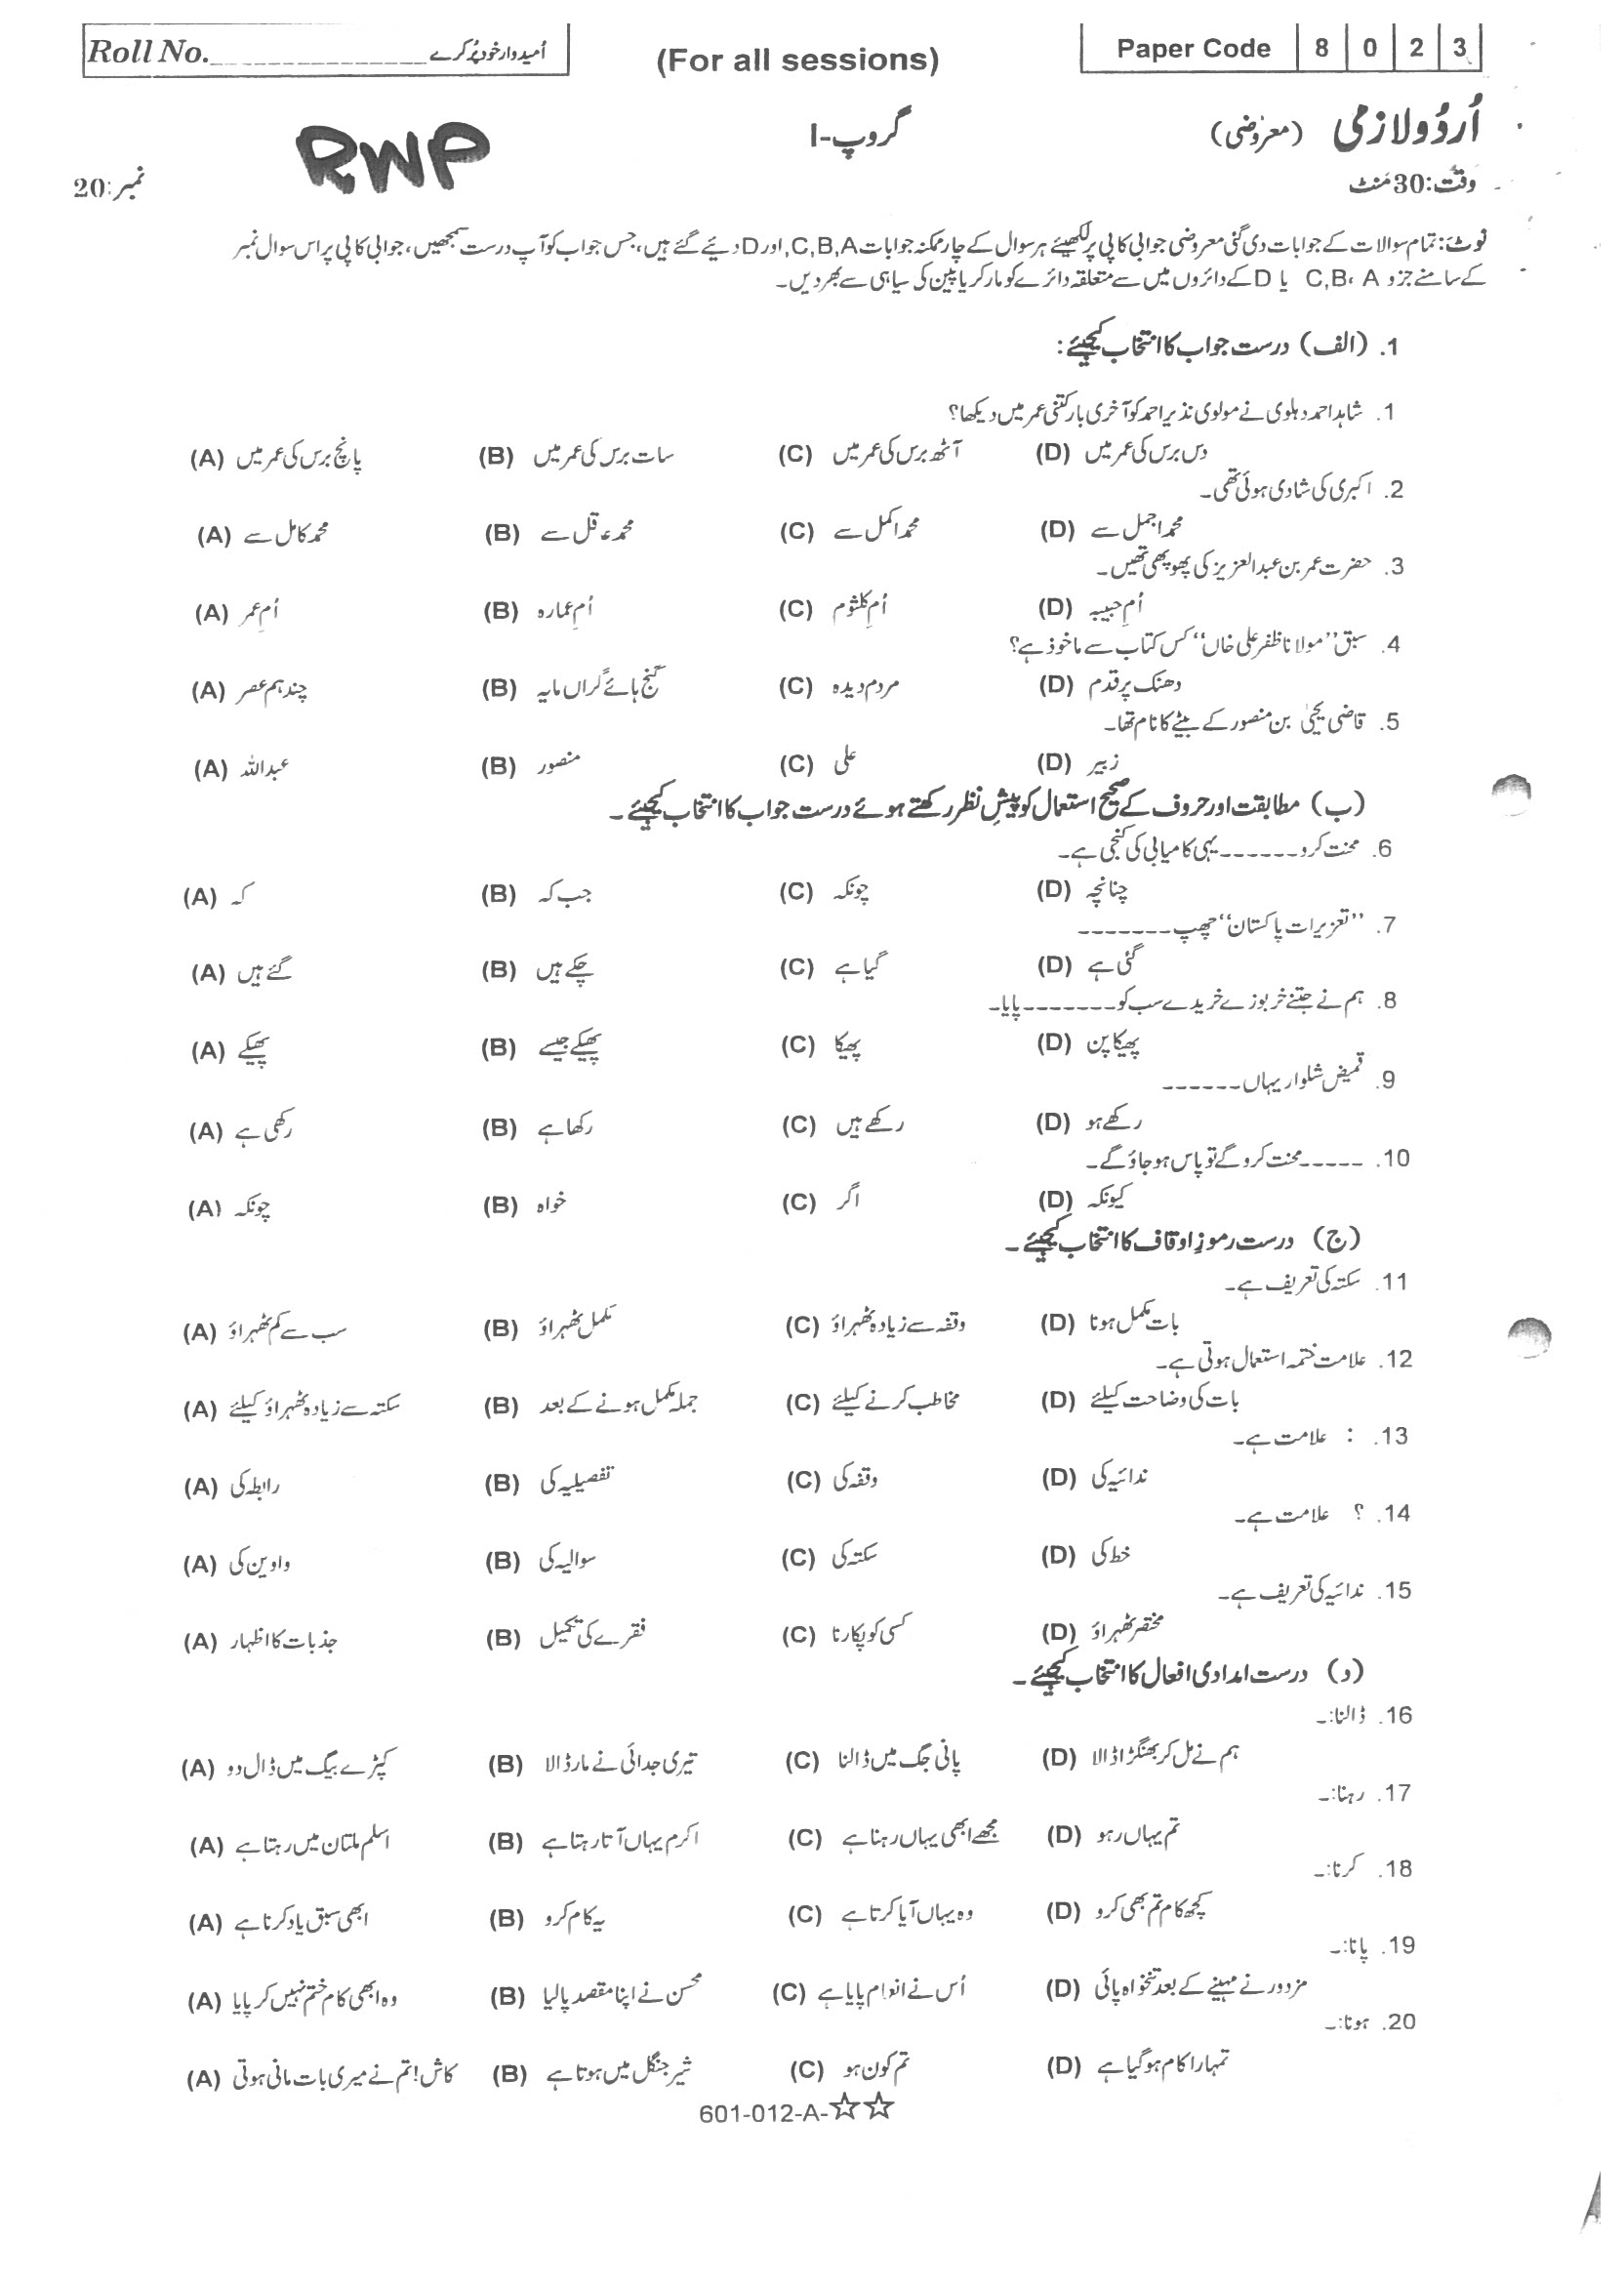 Roll No. ________________ اُمیدوار خود پُر کرے
(For all sessions)
Paper Code 8 0 2 3
اُردُو لازمی (معروضی)
گروپ-I
RWP
وقت: 30 منٹ
نمبر: 20
نوٹ: تمام سوالات کے جوابات دی گئی معروضی جوابی کاپی پر لکھیئے ہر سوال کے چار ممکنہ جوابات C,B,A, اور D دیئے گئے ہیں، جس جواب کو آپ درست سمجھیں، جوابی کاپی پر اس سوال نمبر
کے سامنے جزو C,B، A یا D کے دائروں میں سے متعلقہ دائرے کو مارکر یا پین کی سیاہی سے بھر دیں۔
1. (الف) درست جواب کا انتخاب کیجیئے:
1. شاہد احمد دہلوی نے مولوی نذیر احمد کو آخری بار کتنی عمر میں دیکھا؟
(A) پانچ برس کی عمر میں (B) سات برس کی عمر میں (C) آٹھ برس کی عمر میں (D) دس برس کی عمر میں
2. اکبری کی شادی ہوئی تھی۔
(A) محمد کامل سے (B) محمد عاقل سے (C) محمد اکمل سے (D) محمد اجمل سے
3. حضرت عمر بن عبدالعزیز کی پھوپھی تھیں۔
(A) اُمِ عمر (B) اُمِ عمارہ (C) اُمِ کلثوم (D) اُمِ حبیبہ
4. سبق ”مولانا ظفر علی خاں“ کس کتاب سے ماخوذ ہے؟
(A) چند ہم عصر (B) گنج ہائے گراں مایہ (C) مردم دیدہ (D) دھنک پر قدم
5. قاضی یحییٰ بن منصور کے بیٹے کا نام تھا۔
(A) عبداللہ (B) منصور (C) علی (D) زبیر
(ب) مطابقت اور حروف کے صحیح استعمال کو پیشِ نظر رکھتے ہوئے درست جواب کا انتخاب کیجیئے۔
6. محنت کرو ------ یہی کامیابی کی کنجی ہے۔
(A) کہ (B) جب کہ (C) چونکہ (D) چنانچہ
7. ”تعزیرات پاکستان“ چھپ -------
(A) گئے ہیں (B) چکے ہیں (C) گیا ہے (D) گئی ہے
8. ہم نے جتنے خربوزے خریدے سب کو ------- پایا۔
(A) پھیکے (B) پھیکے جیسے (C) پھیکا (D) پھیکا پن
9. قمیض شلوار یہاں ------
(A) رکھی ہے (B) رکھا ہے (C) رکھے ہیں (D) رکھے ہو
10. ----- محنت کرو گے تو پاس ہو جاؤ گے۔
(A) چونکہ (B) خواہ (C) اگر (D) کیونکہ
(ج) درست رموزِ اوقاف کا انتخاب کیجیئے۔
11. سکتہ کی تعریف ہے۔
(A) سب سے کم ٹھہراؤ (B) مکمل ٹھہراؤ (C) وقفہ سے زیادہ ٹھہراؤ (D) بات مکمل ہونا
12. علامت ختمہ استعمال ہوتی ہے۔
(A) سکتہ سے زیادہ ٹھہراؤ کیلئے (B) جملہ مکمل ہونے کے بعد (C) مخاطب کرنے کیلئے (D) بات کی وضاحت کیلئے
13. : علامت ہے۔
(A) رابطہ کی (B) تفصیلیہ کی (C) وقفہ کی (D) ندائیہ کی
14. ؟ علامت ہے۔
(A) واوین کی (B) سوالیہ کی (C) سکتہ کی (D) خط کی
15. ندائیہ کی تعریف ہے۔
(A) جذبات کا اظہار (B) فقرے کی تکمیل (C) کسی کو پکارنا (D) مختصر ٹھہراؤ
(د) درست امدادی افعال کا انتخاب کیجیئے۔
16. ڈالنا:۔
(A) کپڑے بیگ میں ڈال دو (B) تیری جدائی نے مار ڈالا (C) پانی جگ میں ڈالنا (D) ہم نے مل کر بھنگڑا ڈالا
17. رہنا:۔
(A) اسلم ملتان میں رہتا ہے (B) اکرم یہاں آتا رہتا ہے (C) مجھے ابھی یہاں رہنا ہے (D) تم یہاں رہو
18. کرنا:۔
(A) ابھی سبق یاد کرنا ہے (B) یہ کام کرو (C) وہ یہاں آیا کرتا ہے (D) کچھ کام تم بھی کرو
19. پانا:۔
(A) وہ ابھی کام ختم نہیں کر پایا (B) محسن نے اپنا مقصد پا لیا (C) اُس نے انعام پایا ہے (D) مزدور نے مہینے کے بعد تنخواہ پائی
20. ہونا:۔
(A) کاش! تم نے میری بات مانی ہوتی (B) شیر جنگل میں ہوتا ہے (C) تم کون ہو (D) تمہارا کام ہو گیا ہے
601-012-A-☆☆